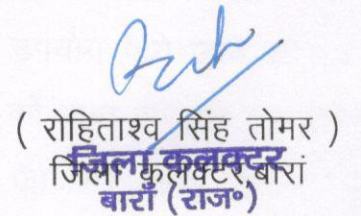 ( रोहिताश्व सिंह तोमर )
जिला कलक्टर, बारां
जिला कलक्टर
बारां (राज०)